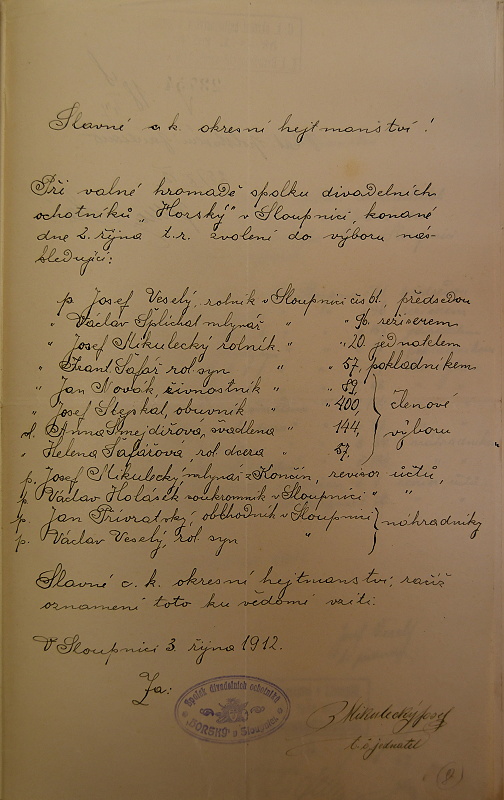 Slavné c. k. okresní hejtmanství!
Při valné hromadě spolku divadelních
ochotníků „Horský" v Sloupnici, konané
dne 2. října t. r. zvoleni do výboru nás-
ledující:
p. Josef Veselý, rolník v Sloupnici čís 61., předsedou
" Václav Šplíchal mlynář " " 96. režiserem
" Josef Mikulecký rolník. " " 20. jednatelem
" Frant. Šafář rol. syn " 57, pokladníkem
" Jan Novák, živnostník " " 89,
" Josef Stepkal, obuvník " " 400, členové
sl. Anna Smejdířová, švadlena " 144, výboru
" Helena Šafářová, rol. dcera " 57.
p. Josef Mikulecký, mlynář z Končin, revisor účtů,
p. Václav Holásek soukromník v Sloupnici " "
p. Jan Přívratský, obchodník v Sloupnici náhradníky
p. Václav Veselý, rol. syn "
Slavné c. k. okresní hejtmanství, račiž
oznámení toto ku vědomí vzíti.
V Sloupnici 3. října 1912.
Za:
Spolek divadelních ochotníků
„HORSKÝ" v Sloupnici
Mikulecký Josef
t. č. jednatel